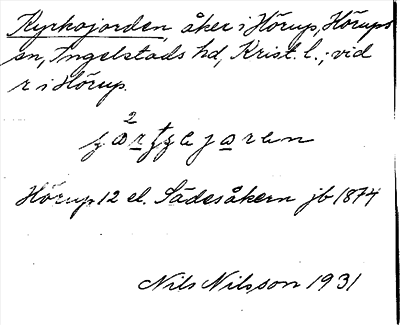 Kyrkojorden, åker i Hörup, Hörups
sn, Ingelstads hd, Krist. l.; vid
r i Hörup.
Hörup 12 el. Sädesåkern jb 1874
Nils Nilsson 1931